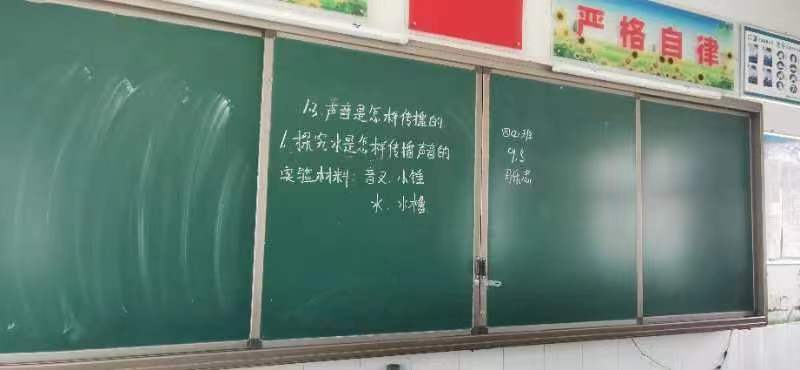 严格自律
1.3 声音是怎样传播的
1.探究水是怎样传播声音的
实验材料：音叉、小锤
水、水槽
四(2)班
9.5